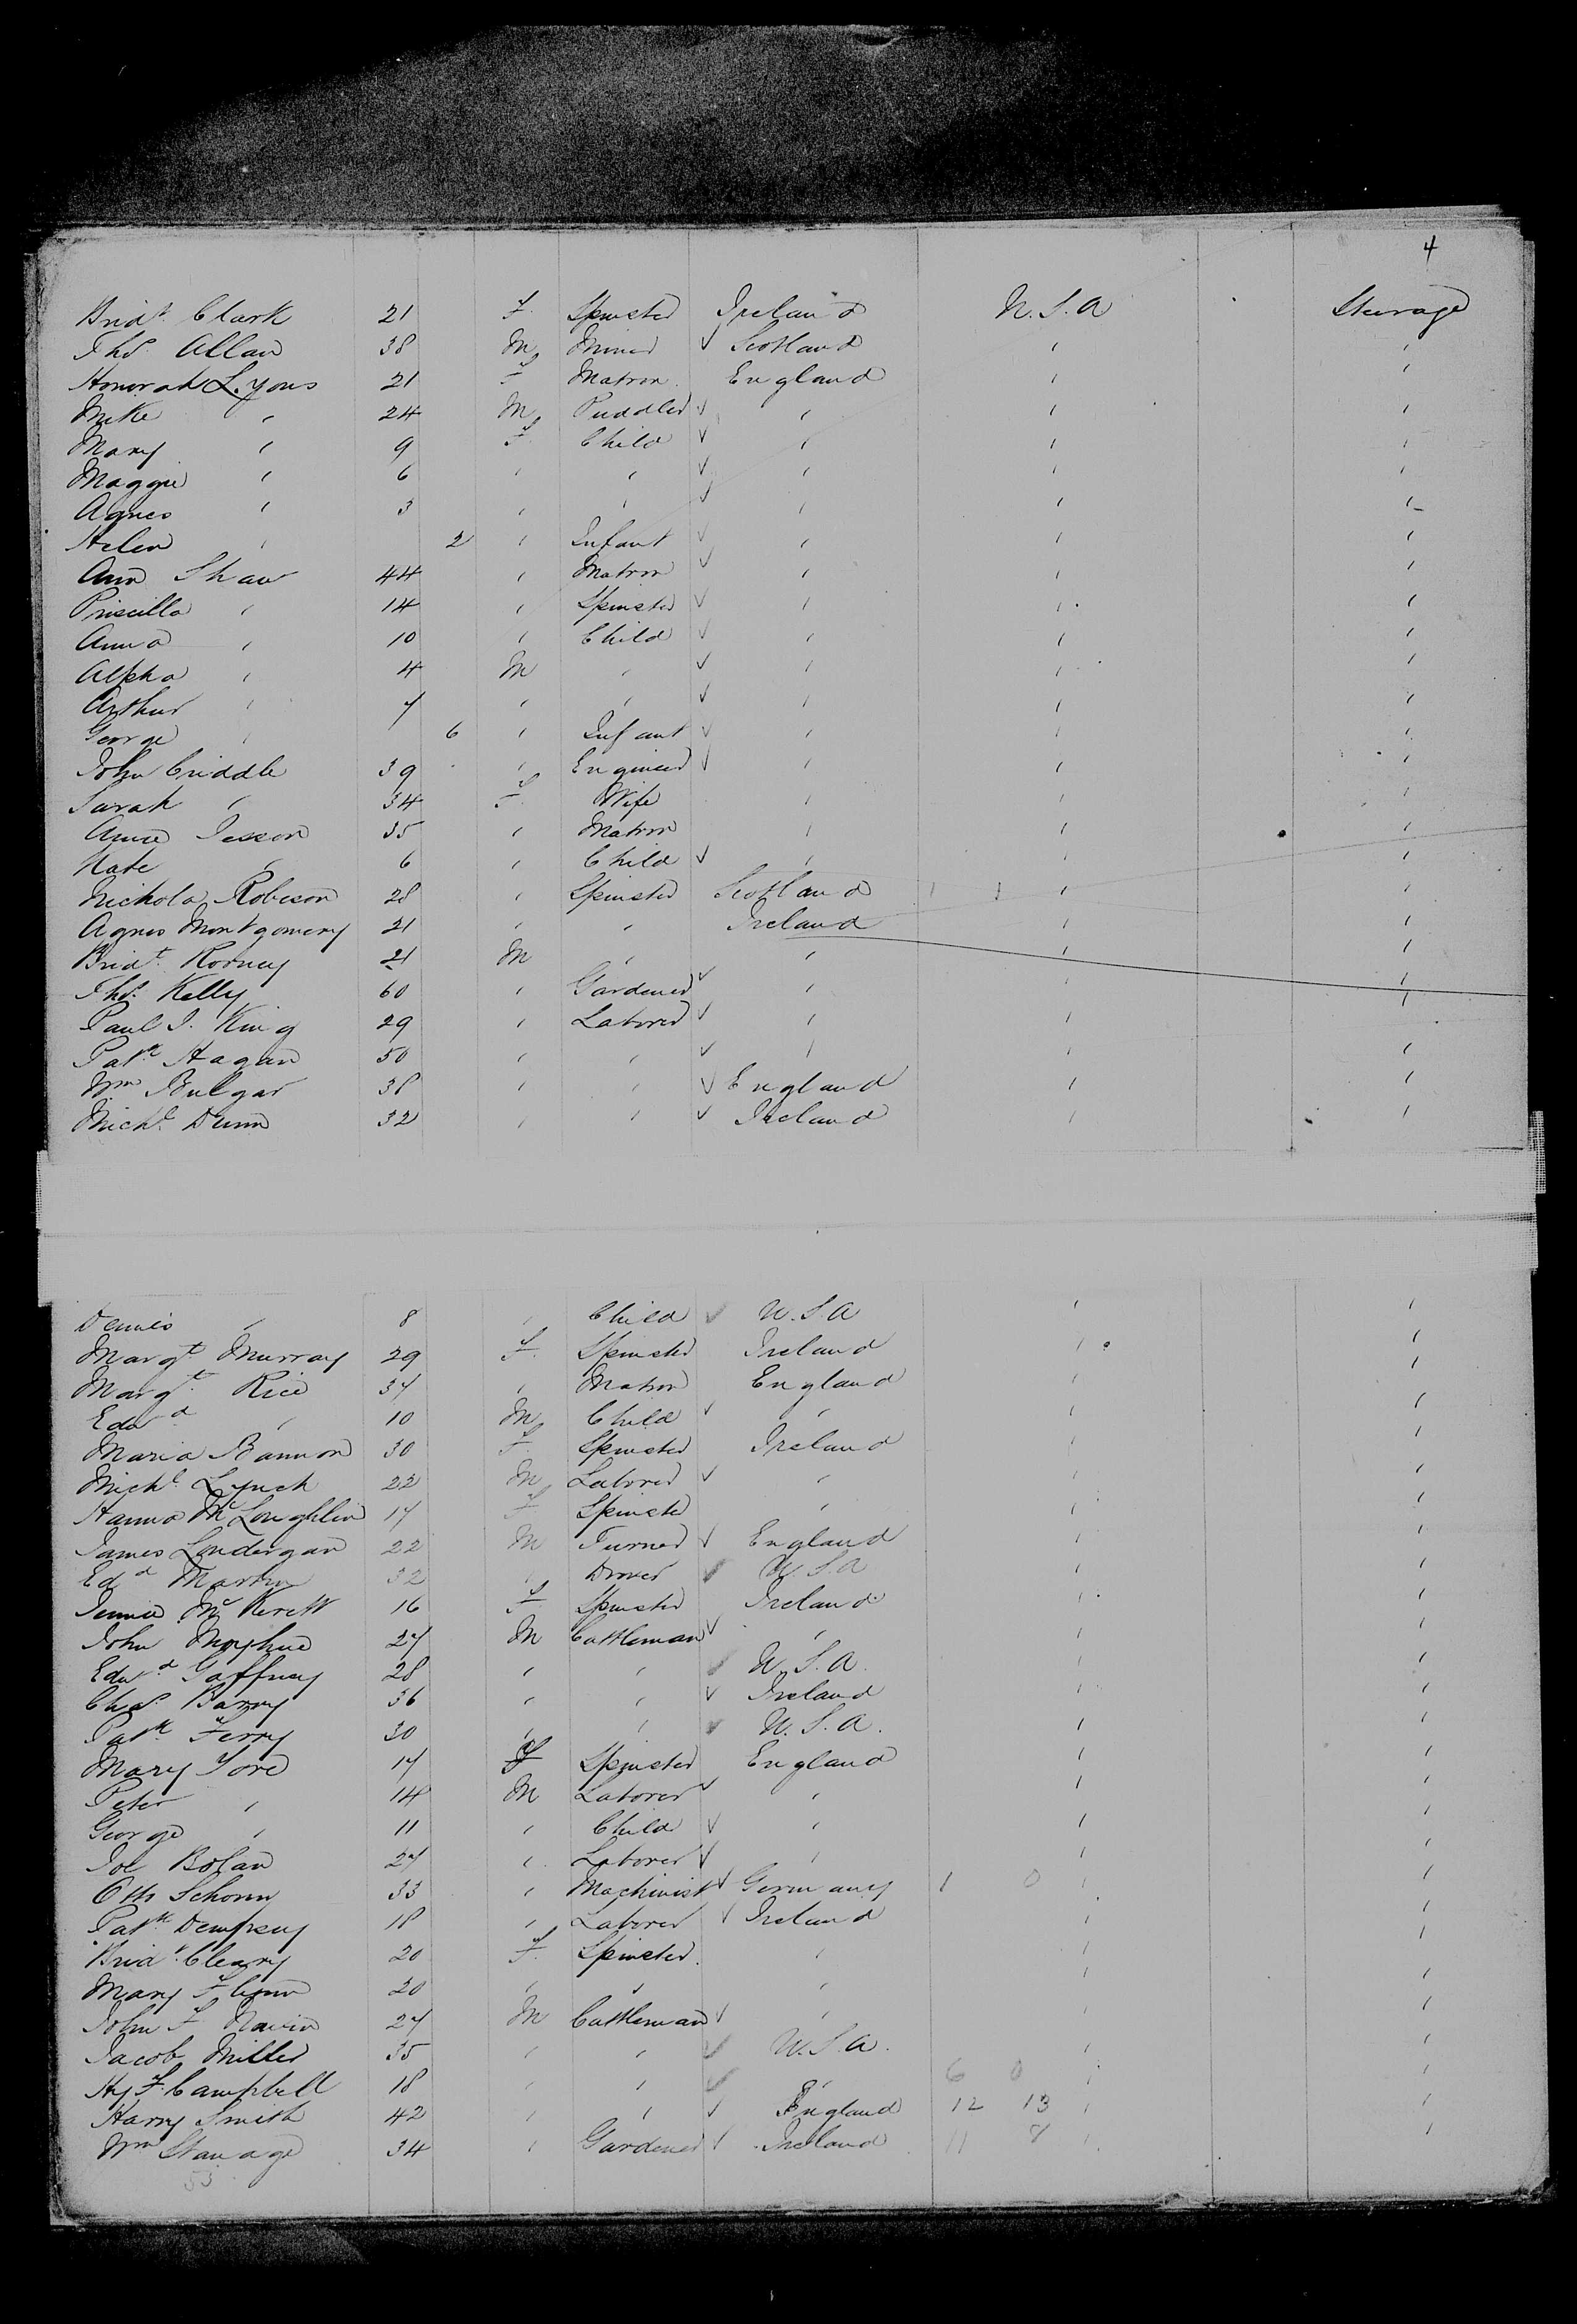 4
Bridt. Clark 21 F. Spinster Ireland U.S.A Steerage
Thos. Allan 38 M Miner ✓ Scotland " "
Honorah Lyons 21 F Matron England " "
Mike " 24 M Puddler ✓ " " "
Mary " 9 F Child ✓ " " "
Maggie " 6 " " ✓ " " "
Agnes " 3 " " ✓ " " "
Helen " 2 " Infant ✓ " " "
Ann Shaw 44 " Matron ✓ " " "
Priscilla " 14 " Spinster ✓ " " "
Anna " 10 " Child ✓ " " "
Alpha " 4 M " ✓ " " "
Arthur " 7 " " ✓ " " "
George " 6 " Infant ✓ " " "
John Criddle 39 " Engineer ✓ " " "
Sarah " 34 F. Wife " " "
Anna Jesson 35 " Matron " " "
Kate " 6 " Child ✓ " " "
Nichola Robeson 28 " Spinster Scotland " "
Agnes Montgomery 21 " " Ireland " "
Bridt. Rodney 21 M " " " "
Thos. Kelly 60 " Gardener ✓ " " "
Paul J. King 29 " Laborer ✓ " " "
Patk Hagan 50 " " ✓ " " "
Wm Bulgar 38 " " ✓ England " "
Michl. Dunn 32 " " ✓ Ireland " "
Dennis " 8 " Child ✓ U.S.A " "
Margt. Murray 29 F. Spinster Ireland " "
Margt. Rice 37 " Matron England " "
Edwd " 10 M Child ✓ " " "
Maria Bannon 30 F. Spinster Ireland " "
Michl. Lynch 22 M Laborer ✓ " " "
Hanna McLoughlin 17 F Spinster " " "
James Londergan 22 M Turner ✓ England " "
Edd Martin 32 " Drover ✓ U.S.A " "
Jennie Mc 16 F Spinster Ireland " "
John 27 M Cattleman ✓ " " "
Edwd Gaffney 28 " " ✓ U.S.A. " "
Chas. Barry 36 " " ✓ Ireland " "
Patk Ferry 30 " " ✓ U.S.A. " "
Mary Tore 17 F Spinster England " "
Peter " 14 M Laborer ✓ " " "
George " 11 " Child ✓ " " "
Joe Bolan 27 " Laborer ✓ " " "
Otto Schorn 33 " Machinist ✓ Germany 1 0 " "
Patk Dempsey 18 " Laborer ✓ Ireland " "
Bridt. Cleary 20 F. Spinster. " " "
Mary Flynn 20 " " " " "
John F. Navin 27 M Cattleman ✓ " " "
Jacob Miller 35 " " ✓ U.S.A. " "
Hy F. Campbell 18 " " ✓ " 6 0 " "
Harry Smith 42 " " ✓ England 12 13 " "
Wm Stanage 34 " Gardener ✓ Ireland 11 8 " "
53